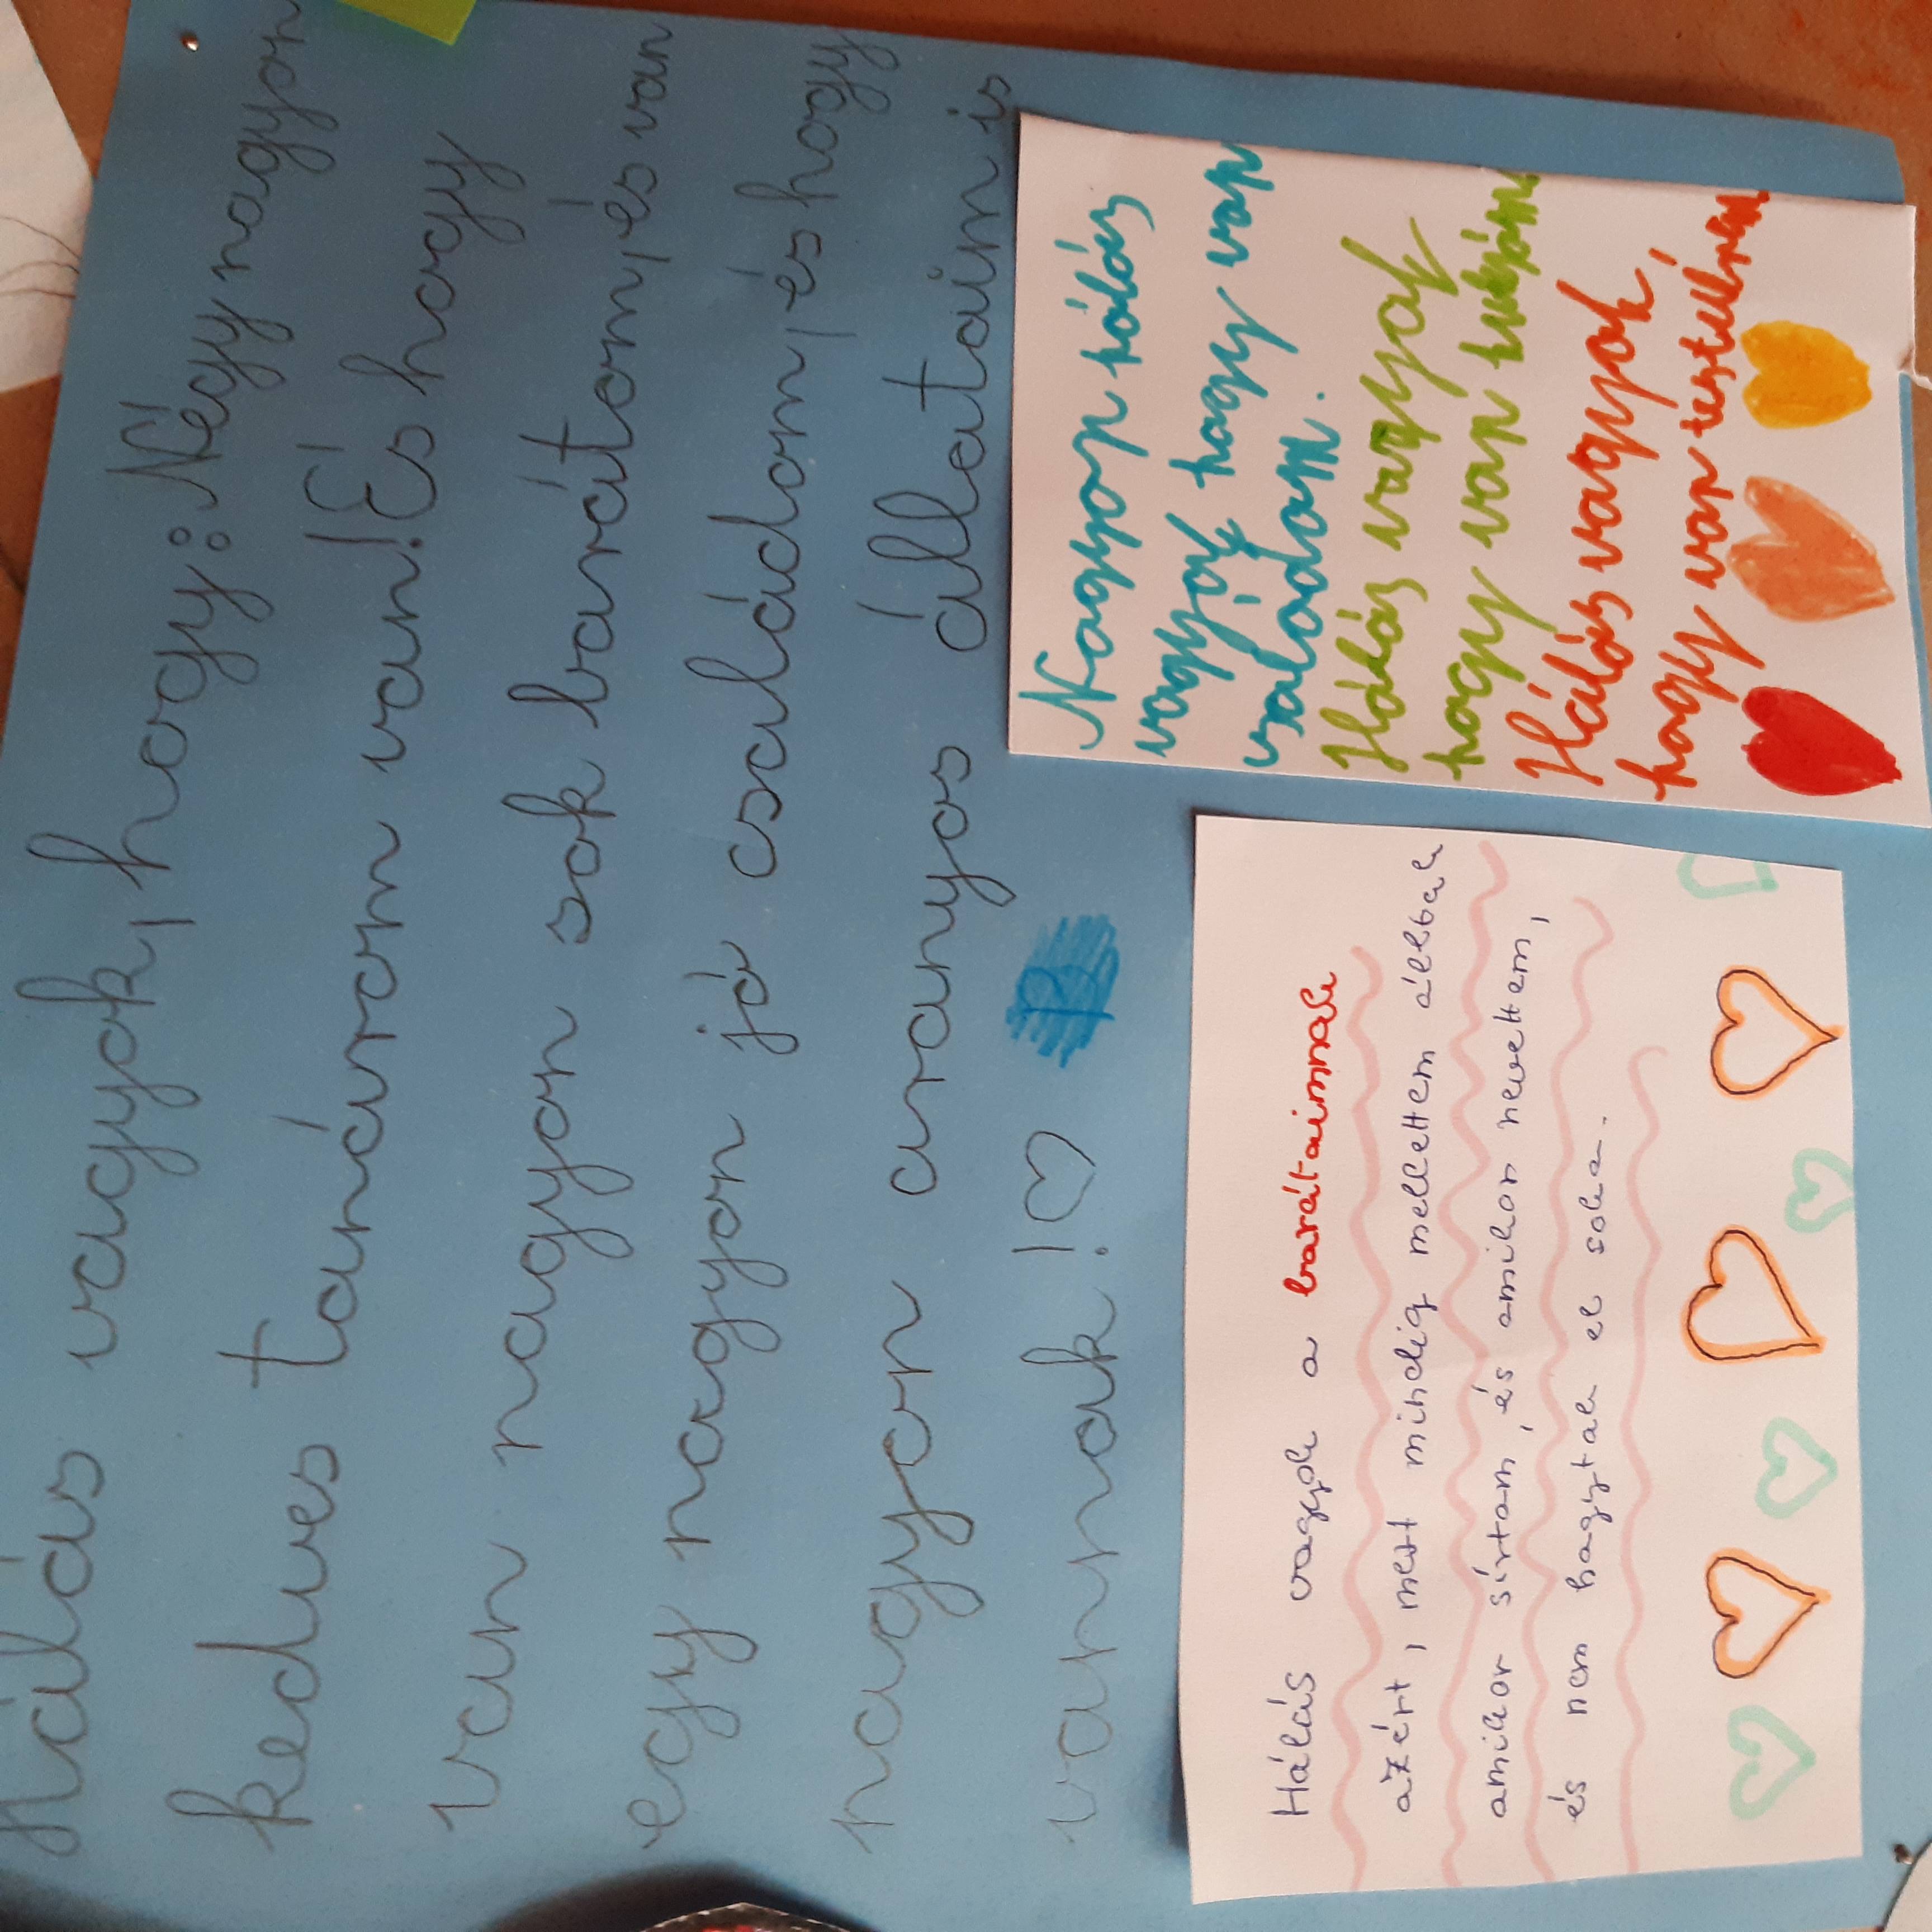 Hálás vagyok, hogy: Négy nagyon
kedves tanárom van! És hogy
van nagyon sok barátom, és van
egy nagyon jó családom, és hogy
nagyon aranyos állataim is
vannak!
Hálás vagyok a barátaimnak
azért, mert mindig mellettem álltak
amikor sírtam, és amikor nevettem,
és nem hagytak el soha.
Nagyon hálás
vagyok hogy van
csaladom.
Hálás vagyok
hogy van
Hálás vagyok,
hogy van testvérem